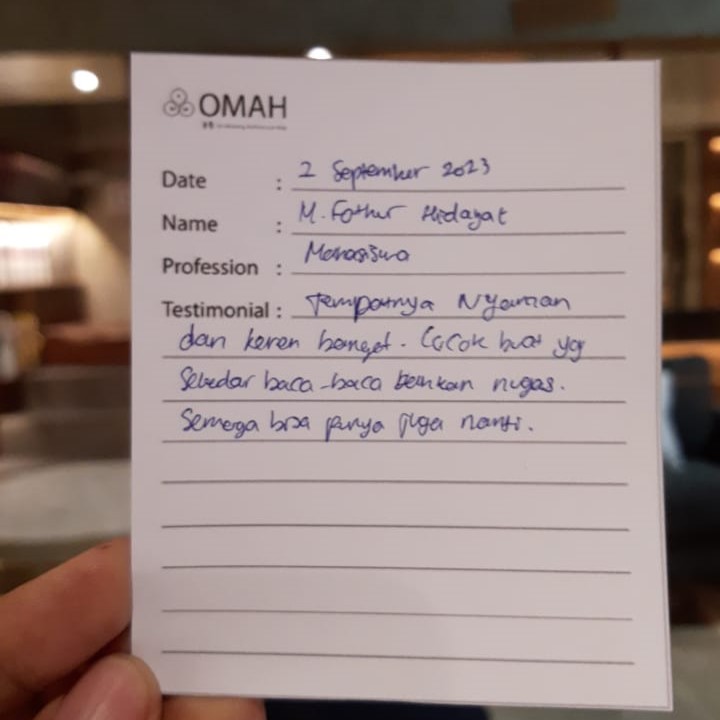 OMAH
Date : 2 September 2023
Name : M. Fathur Hidayat
Profession : Mahasiswa
Testimonial : Tempatnya Nyaman
dan keren banget. Cocok buat yg
Sekedar baca-baca bahkan nugas.
Semoga bisa punya juga nanti.